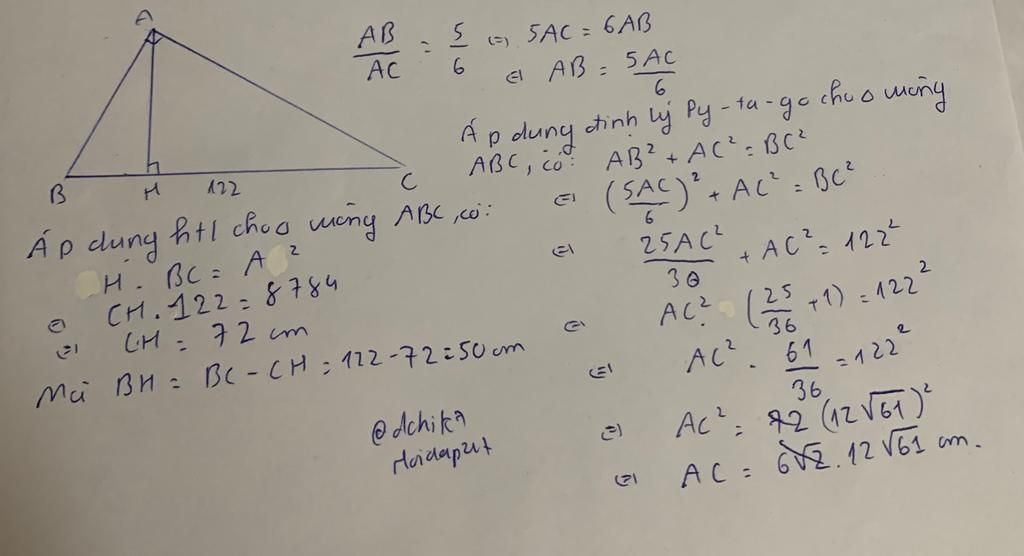 A
B
H
122
C
AB/AC = 5/6 ⇔ 5AC = 6AB
⇔ AB = 5AC/6
Áp dụng định lý Py-ta-go cho Δ vuông
ABC, có: AB² + AC² = BC²
⇔ (5AC/6)² + AC² = BC²
⇔ 25AC²/36 + AC² = 122²
⇔ AC². (25/36 + 1) = 122²
⇔ AC² . 61/36 = 122²
⇔ AC² = (12√61)²
⇔ AC = 12√61 cm.
Áp dụng htl cho Δ vuông ABC, có:
H . BC = A ²
⇔ CH . 122 = 8784
⇔ CH = 72 cm
Mà BH = BC - CH = 122 - 72 = 50 cm